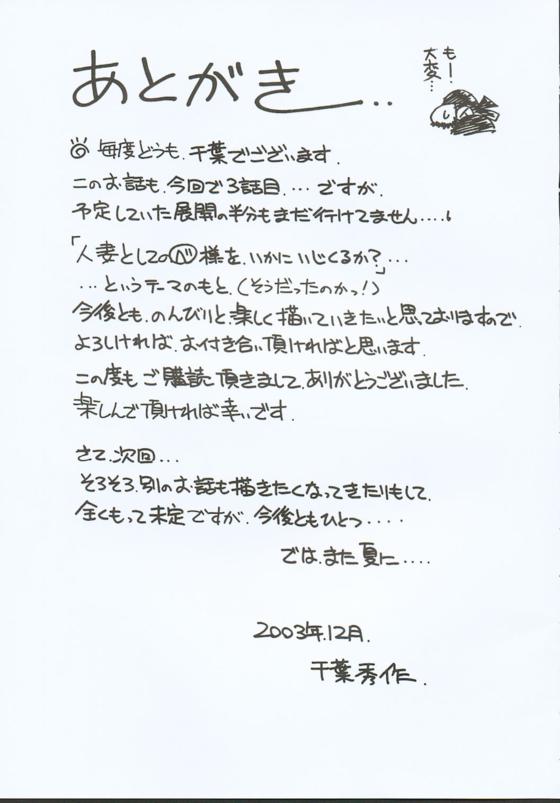 あとがき...
もー!
大変...
毎度どうも.千葉でございます.
このお話も.今回で3話目....ですが.
予定していた展開の半分もまだ行けてません....
「人妻としての㋬様を.いかにいじくるか?」...
...というテーマのもと.(そうだったのかっ!)
今後とも.のんびりと.楽しく描いていきたいと思っておりますので.
よろしければ.お付き合い頂ければと思います.
この度も ご購読頂きまして.ありがとうございました.
楽しんで頂ければ幸いです.
さて.次回...
そろそろ.別のお話も描きたくなってきたりもして.
全くもって未定ですが.今後ともひとつ....
では.また夏に....
2003年.12月.
千葉秀作.